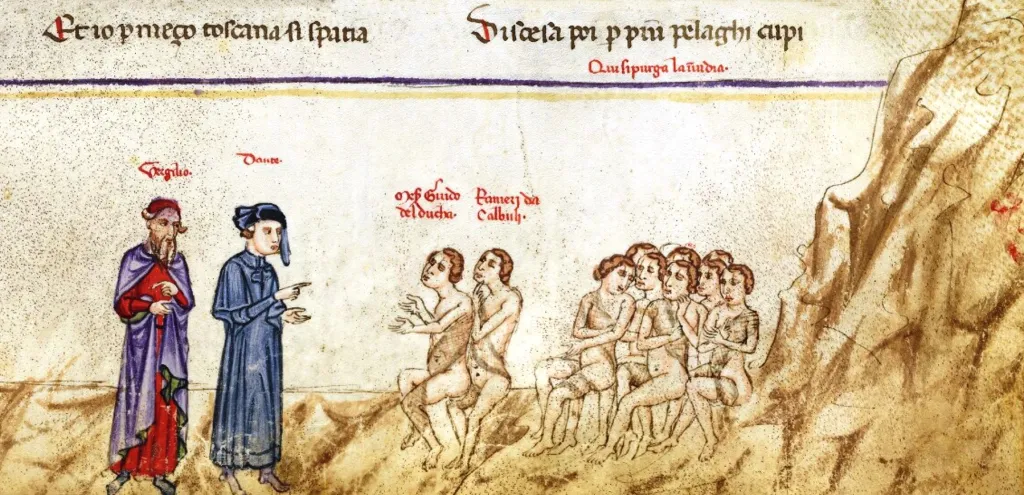 Et io p mego toscana si spatia
Discesa poi p piu pelaghi cupi
Qui si purga la nuidia.
Vergilio.
Dante.
Mes Guido
del ducha.
Ranieri da
Calbuli.